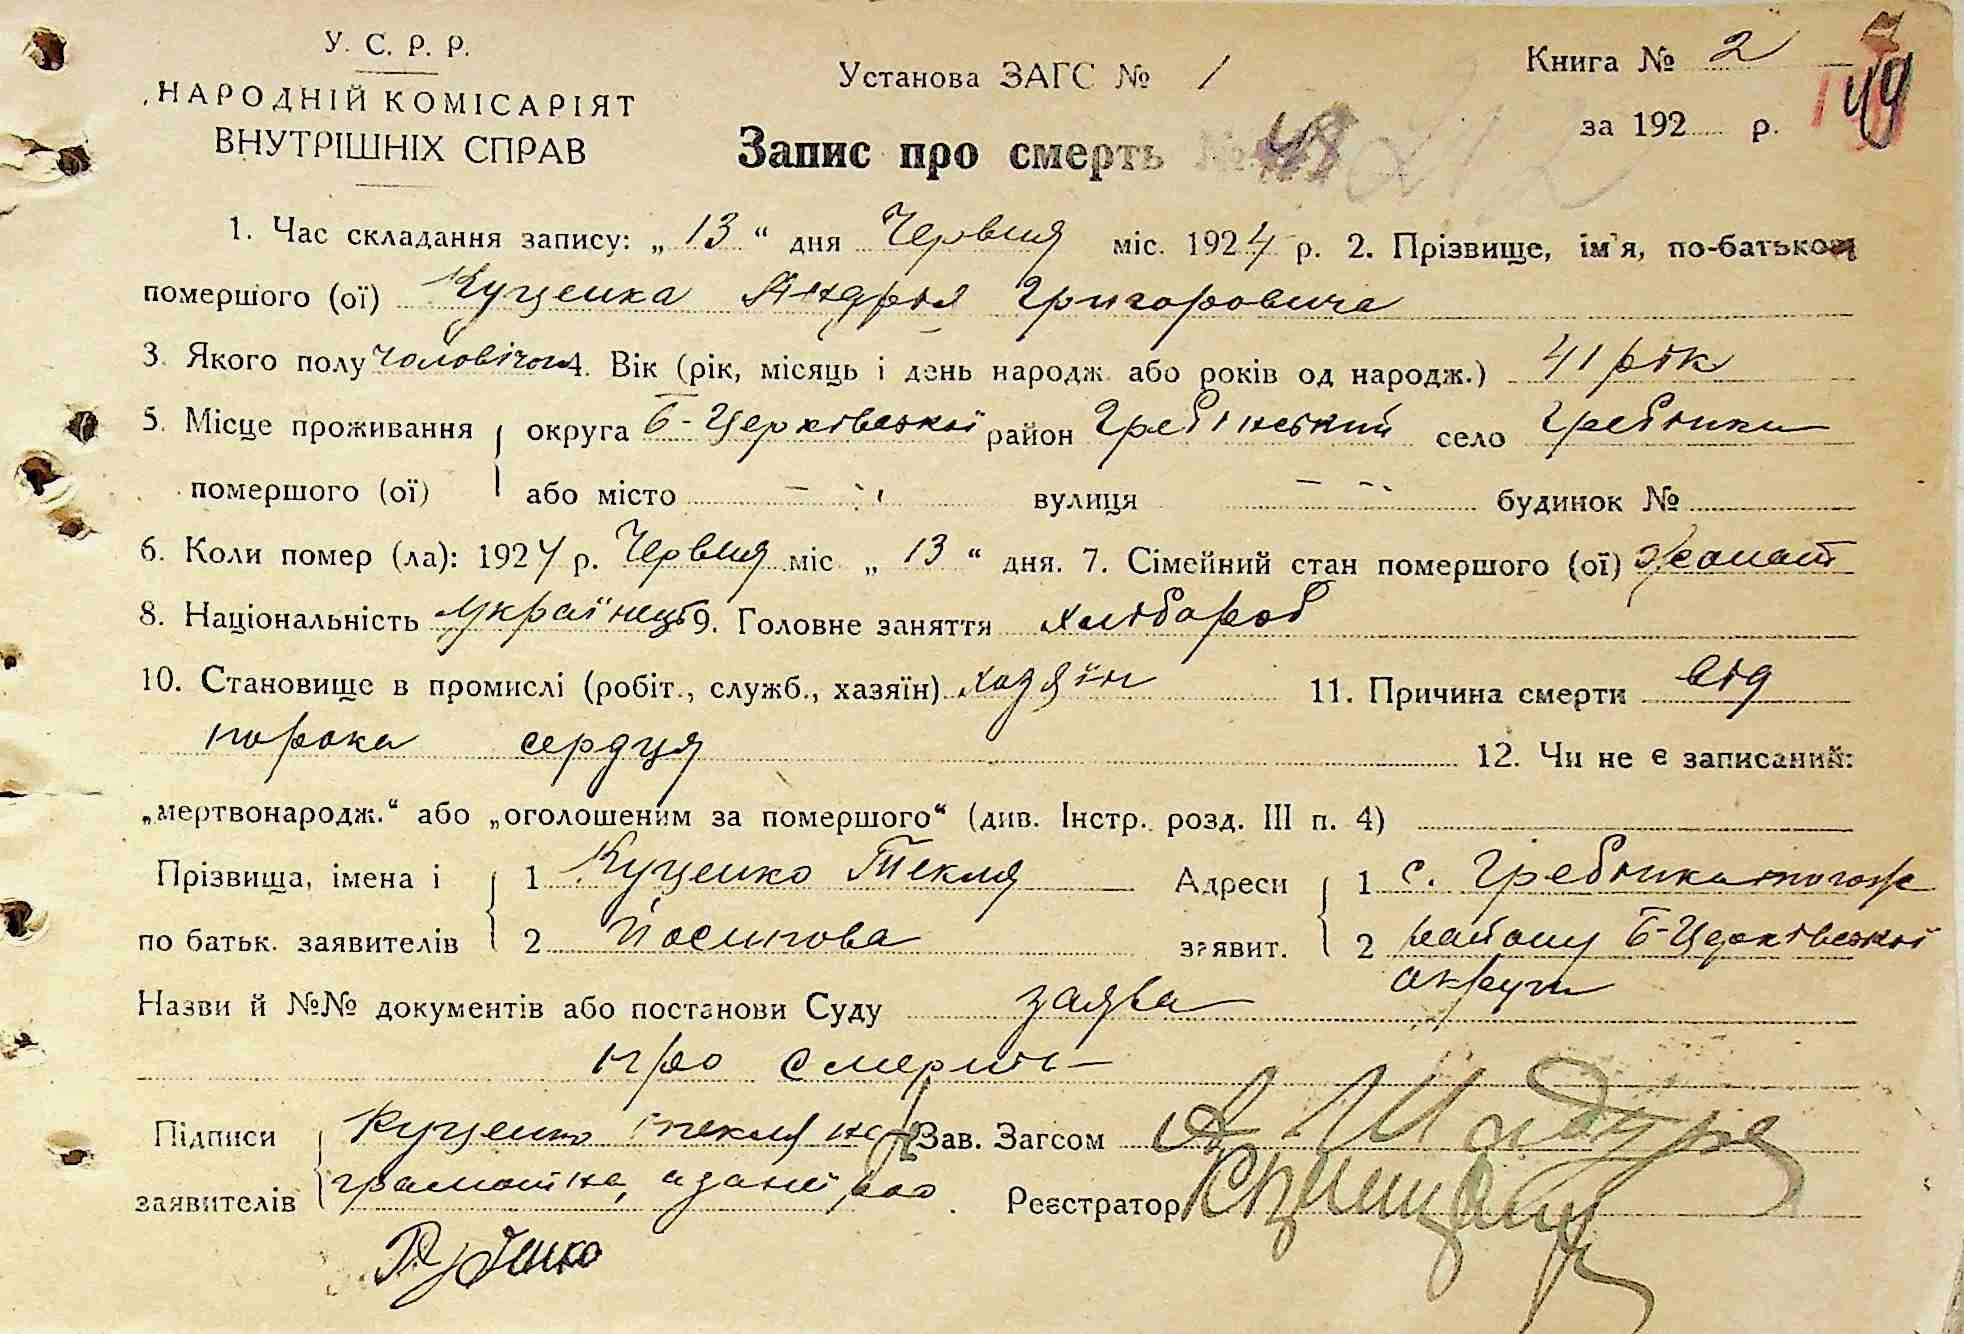 У. С. Р. Р.
НАРОДНІЙ КОМІСАРІЯТ
ВНУТРІШНІХ СПРАВ
Установа ЗАГС № 1
Книга № 2
за 192 р.
149
Запис про смерть № 48
212
1. Час складання запису: „ 13 “ дня Червня міс. 1924 р. 2. Прізвище, ім'я, по-батькові
помершого (ої) Куценка Андрія Григоровича
3. Якого полу чоловічої 4. Вік (рік, місяць і день народж. або років од народж.) 41 рік
5. Місце проживання округа Б-Церківської район Гребінський село Гребінки
помершого (ої) або місто вулиця будинок №
6. Коли помер (ла): 1924 р. Червня міс „ 13 “ дня. 7. Сімейний стан помершого (ої) жонат
8. Національність Українець 9. Головне заняття хлібороб
10. Становище в промислі (робіт., служб., хазяїн) хазяїн 11. Причина смерти від
порока сердця 12. Чи не є записаний:
„мертвонародж.“ або „оголошеним за помершого“ (див. Інстр. розд. III п. 4)
Прізвища, імена і 1 Куценко Текля Адреси 1 с. Гребінки того ж
по батьк. заявителів 2 Йосипова заявит. 2 району Б-Церківської
округи
Назви й №№ документів або постанови Суду заява
про смерть
Підписи Куценко Текля не Зав. Загсом А. Шадура
заявителів грамотна, а за неї Реєстратор